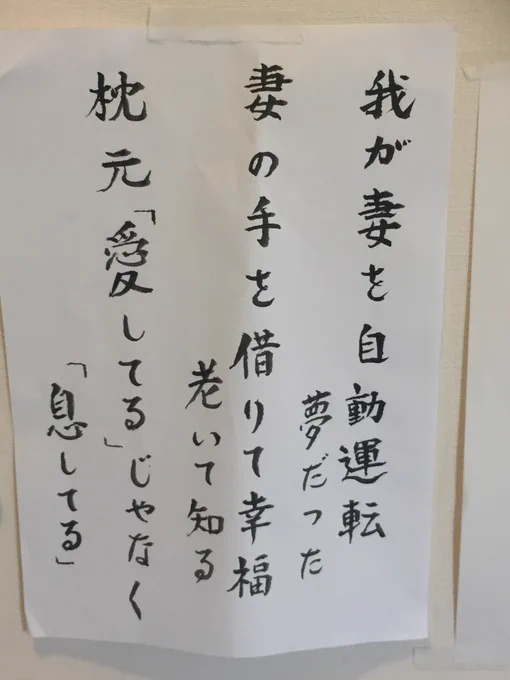 我が妻を自動運転
夢だった
妻の手を借りて幸福
老いて知る
枕元「愛してる」じゃなく
「息してる」